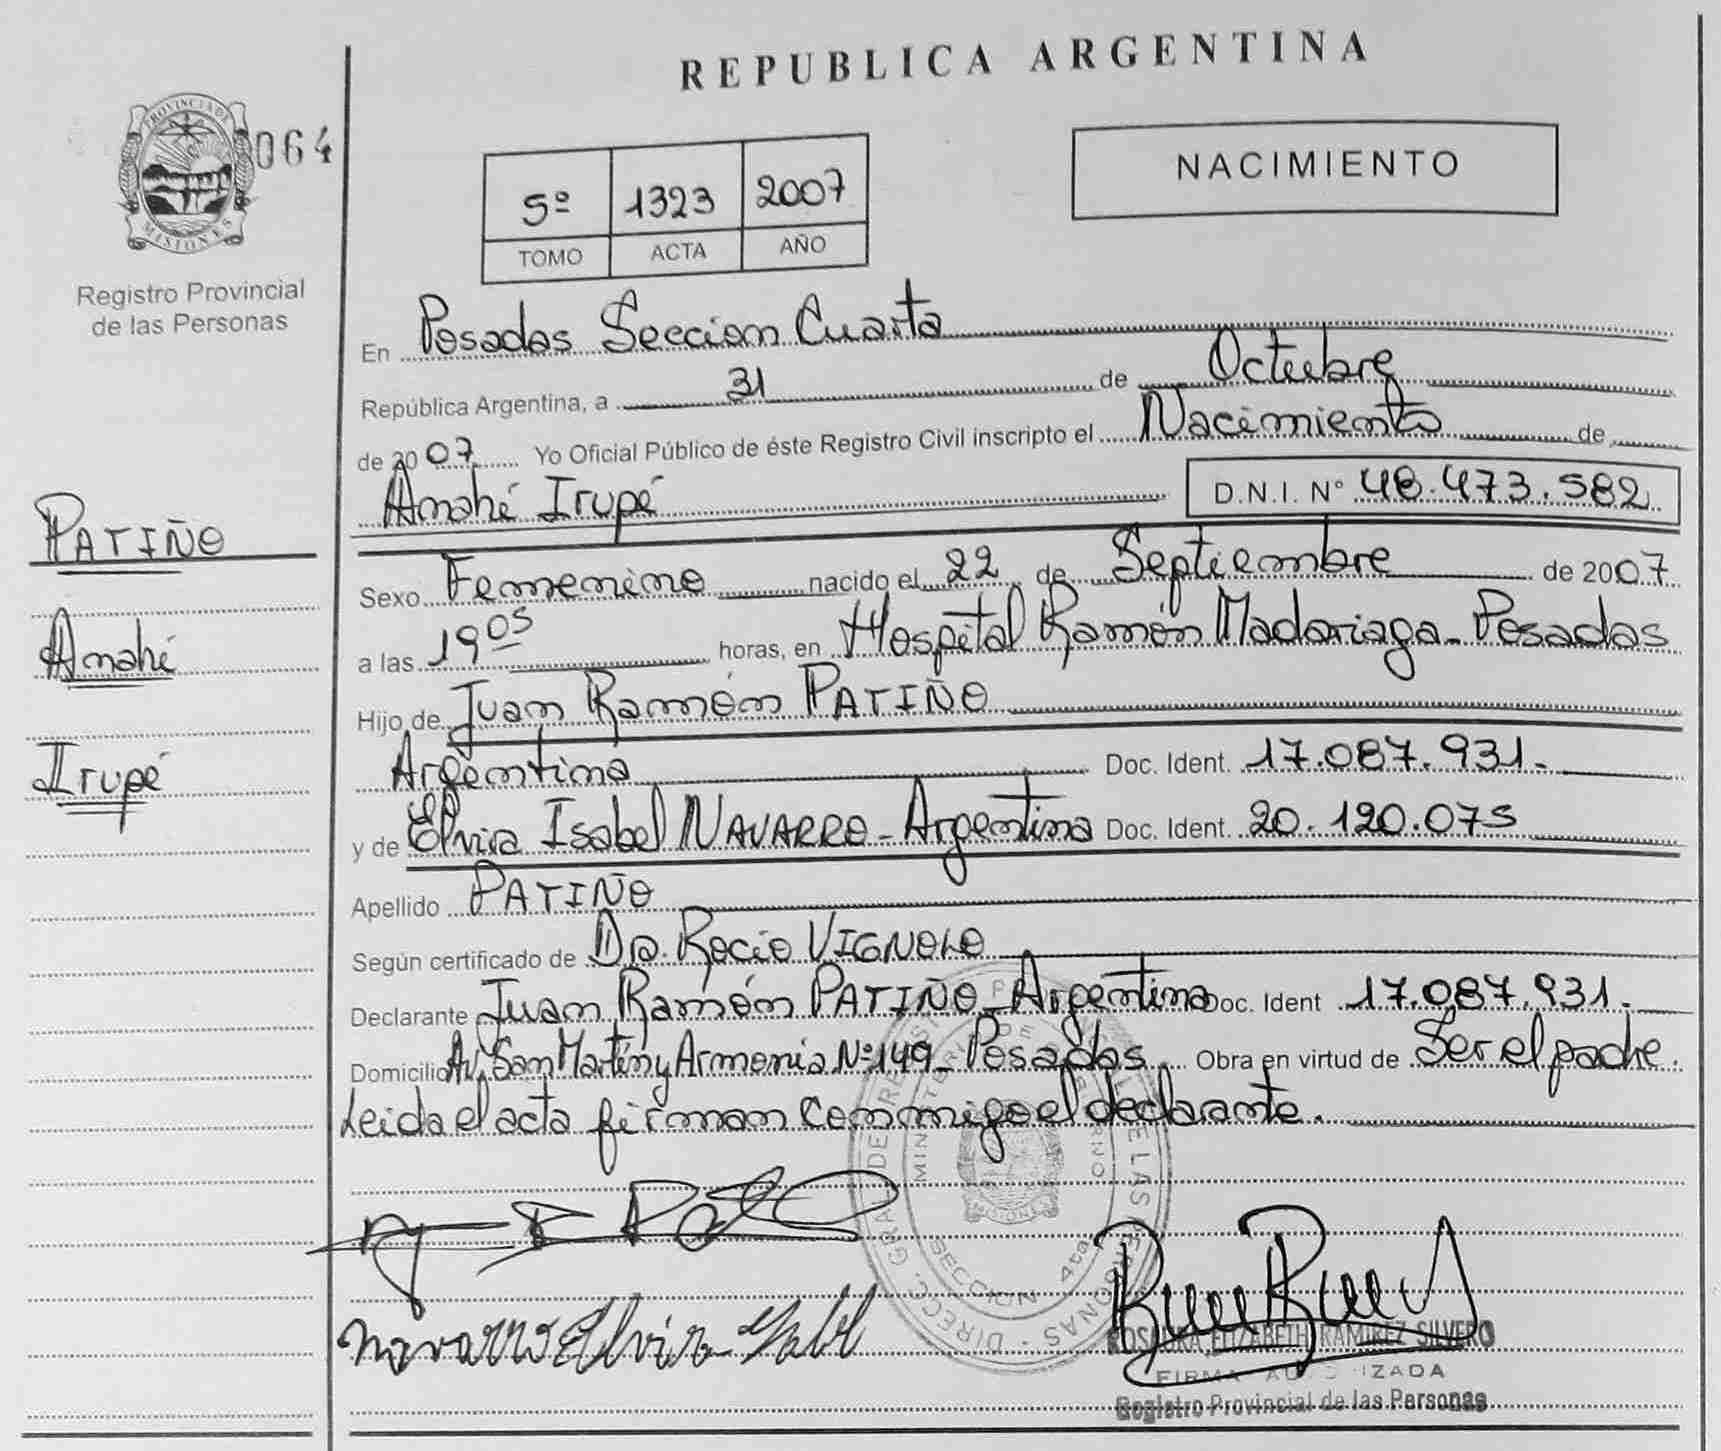 REPUBLICA ARGENTINA
PROVINCIA DE
MISIONES
064
Registro Provincial
de las Personas
5º 1323 2007
TOMO ACTA AÑO
NACIMIENTO
En Posadas Seccion Cuarta
República Argentina, a 31 de Octubre
de 2007 Yo Oficial Público de éste Registro Civil inscripto el Nacimiento de
Anahé Irupé D.N.I. Nº 48.473.582
PATIÑO
Anahé
Irupé
Sexo Femenino nacido el 22 de Septiembre de 2007
a las 19 05 horas, en Hospital Ramón Madariaga - Posadas
Hijo de Juan Ramón PATIÑO
Argentino Doc. Ident. 17.087.931.-
y de Elvira Isabel NAVARRO - Argentina Doc. Ident. 20.120.075
Apellido PATIÑO
Según certificado de Dra. Rocío VIGNOLO
Declarante Juan Ramón PATIÑO - Argentino Doc. Ident 17.087.931.-
Domicilio Av. San Martín y Armonia Nº 149 - Posadas. Obra en virtud de Ser el padre.
Leida el acta firman conmigo el declarante.
SECCION 4ta
Navarro Elvira Isabel
ROSAURA ELIZABETH RAMIREZ SILVERO
FIRMA AUTORIZADA
Registro Provincial de las Personas